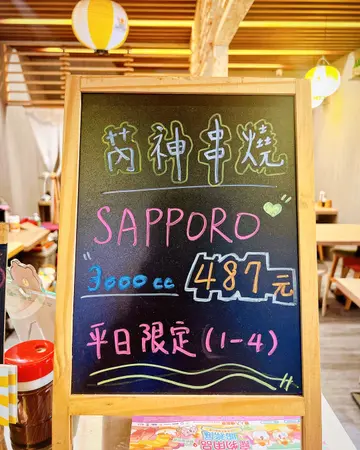 芮神串燒
SAPPORO
"3000cc 487元"
平日限定(1-4)